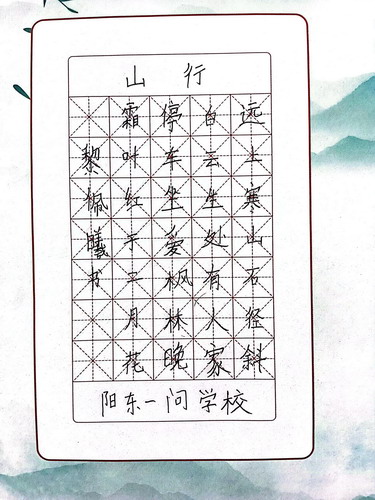 山行
远上寒山石径斜
白云生处有人家
停车坐爱枫林晚
霜叶红于二月花
黎佩曦书
阳东一问学校